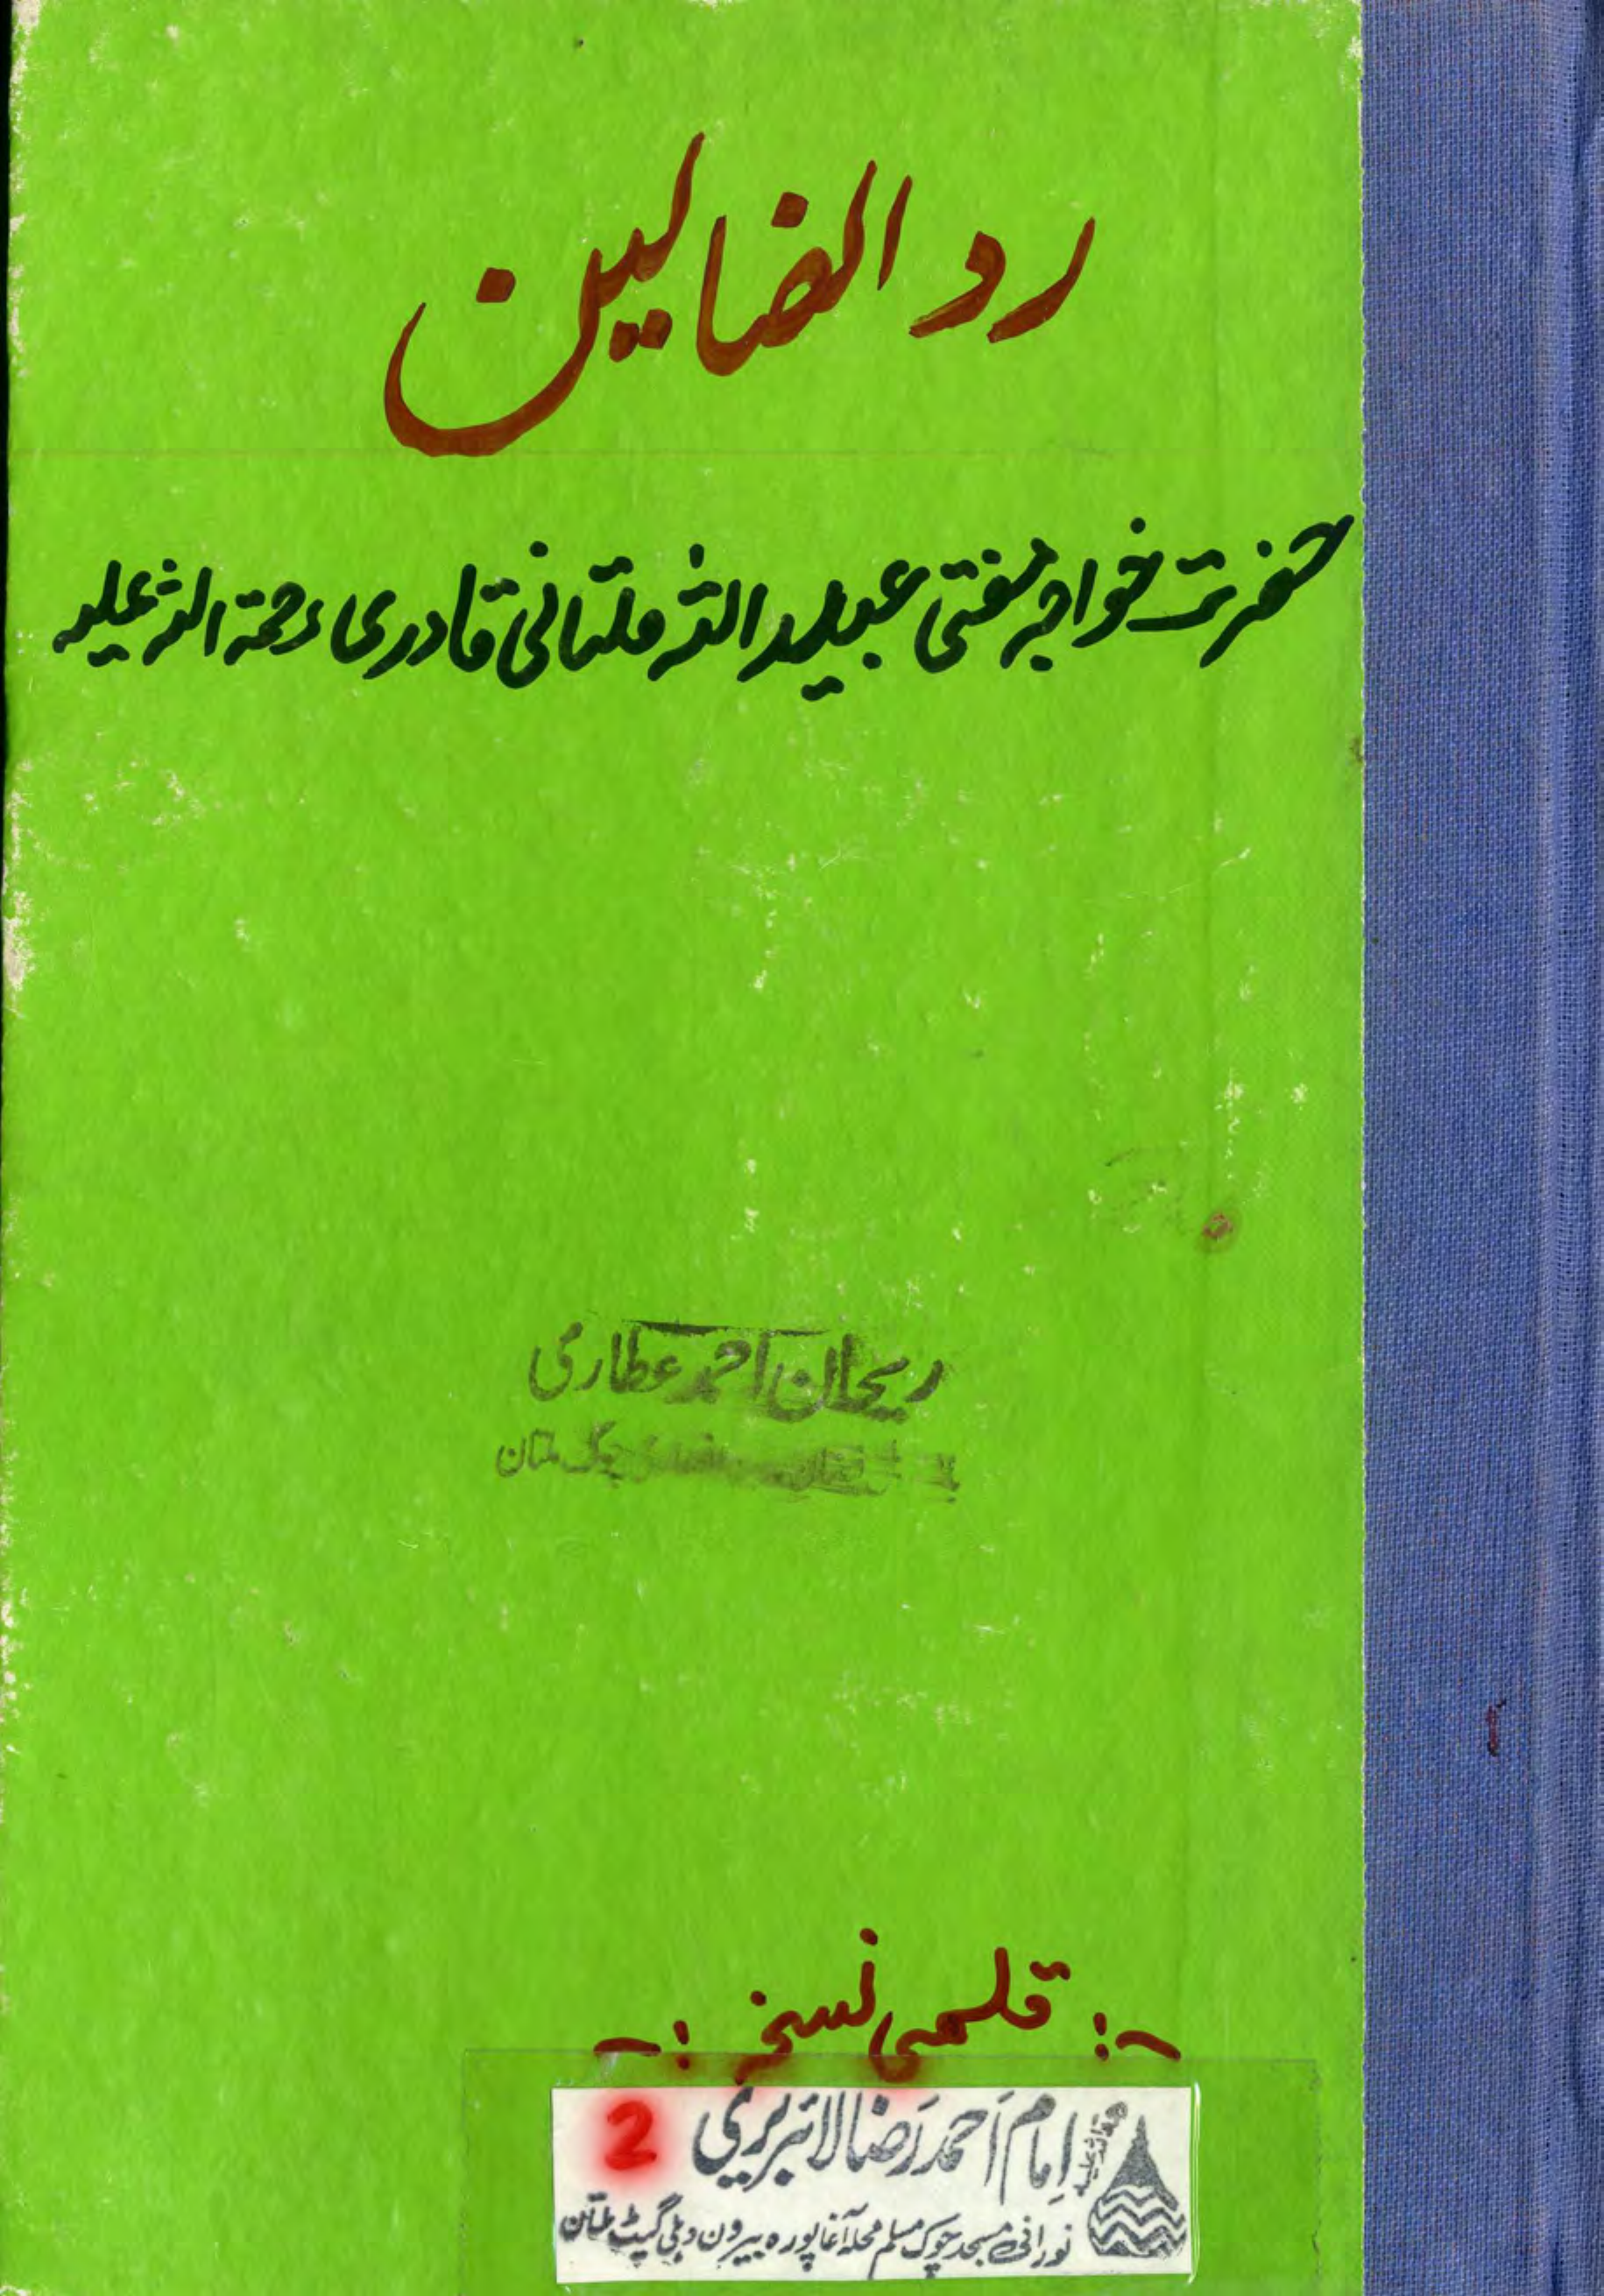 رد الضالین
حضرت خواجہ مفتی عبید اللہ ملتانی قادری رحمۃ اللہ علیہ
ریحان احمد عطاری
چوک ملتان
-: قلمی نسخہ :-
امام احمد رضا لائبریری 2
رحمۃ اللہ علیہ
نورانی مسجد چوک مسلم محلہ آغا پورہ بیرون دہلی گیٹ ملتان